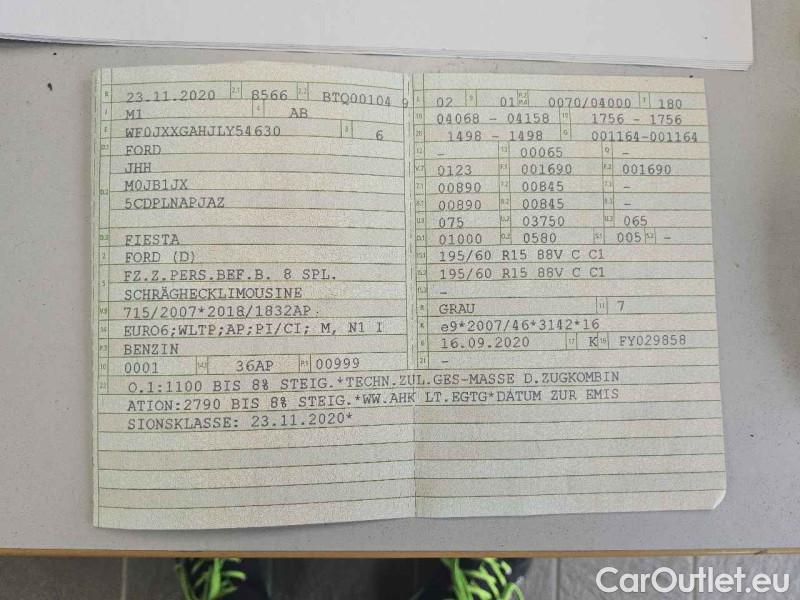 B 23.11.2020 2.1 8566 2.2 BTQ00104 9
J M1 4 AB
E WF0JXXGAHJLY54630 3 6
D.1 FORD
JHH
D.2 M0JB1JX
5CDPLNAPJAZ
D.3 FIESTA
2 FORD (D)
5 FZ.Z.PERS.BEF.B. 8 SPL.
SCHRÄGHECKLIMOUSINE
V.9 715/2007*2018/1832AP
14 EURO6;WLTP;AP;PI/CI; M, N1 I
P.3 BENZIN
10 0001 14.1 36AP P.1 00999
22 O.1:1100 BIS 8% STEIG.*TECHN.ZUL.GES-MASSE D.ZUGKOMBIN
ATION:2790 BIS 8% STEIG.*WW.AHK LT.EGTG*DATUM ZUR EMIS
SIONSKLASSE: 23.11.2020*
L 02 9 01 P.2 P.4 0070/04000 T 180
18 04068 - 04158 19 1756 - 1756
20 1498 - 1498 G 001164-001164
12 - 13 00065 Q -
V.7 0123 F.1 001690 F.2 001690
7.1 00890 7.2 00845 7.3 -
8.1 00890 8.2 00845 8.3 -
U.1 075 U.2 03750 U.3 065
O.1 01000 O.2 0580 S.1 005 S.2 -
15.1 195/60 R15 88V C C1
15.2 195/60 R15 88V C C1
15.3 -
R GRAU 11 7
K e9*2007/46*3142*16
6 16.09.2020 17 K 16 FY029858
21 -
CarOutlet.eu